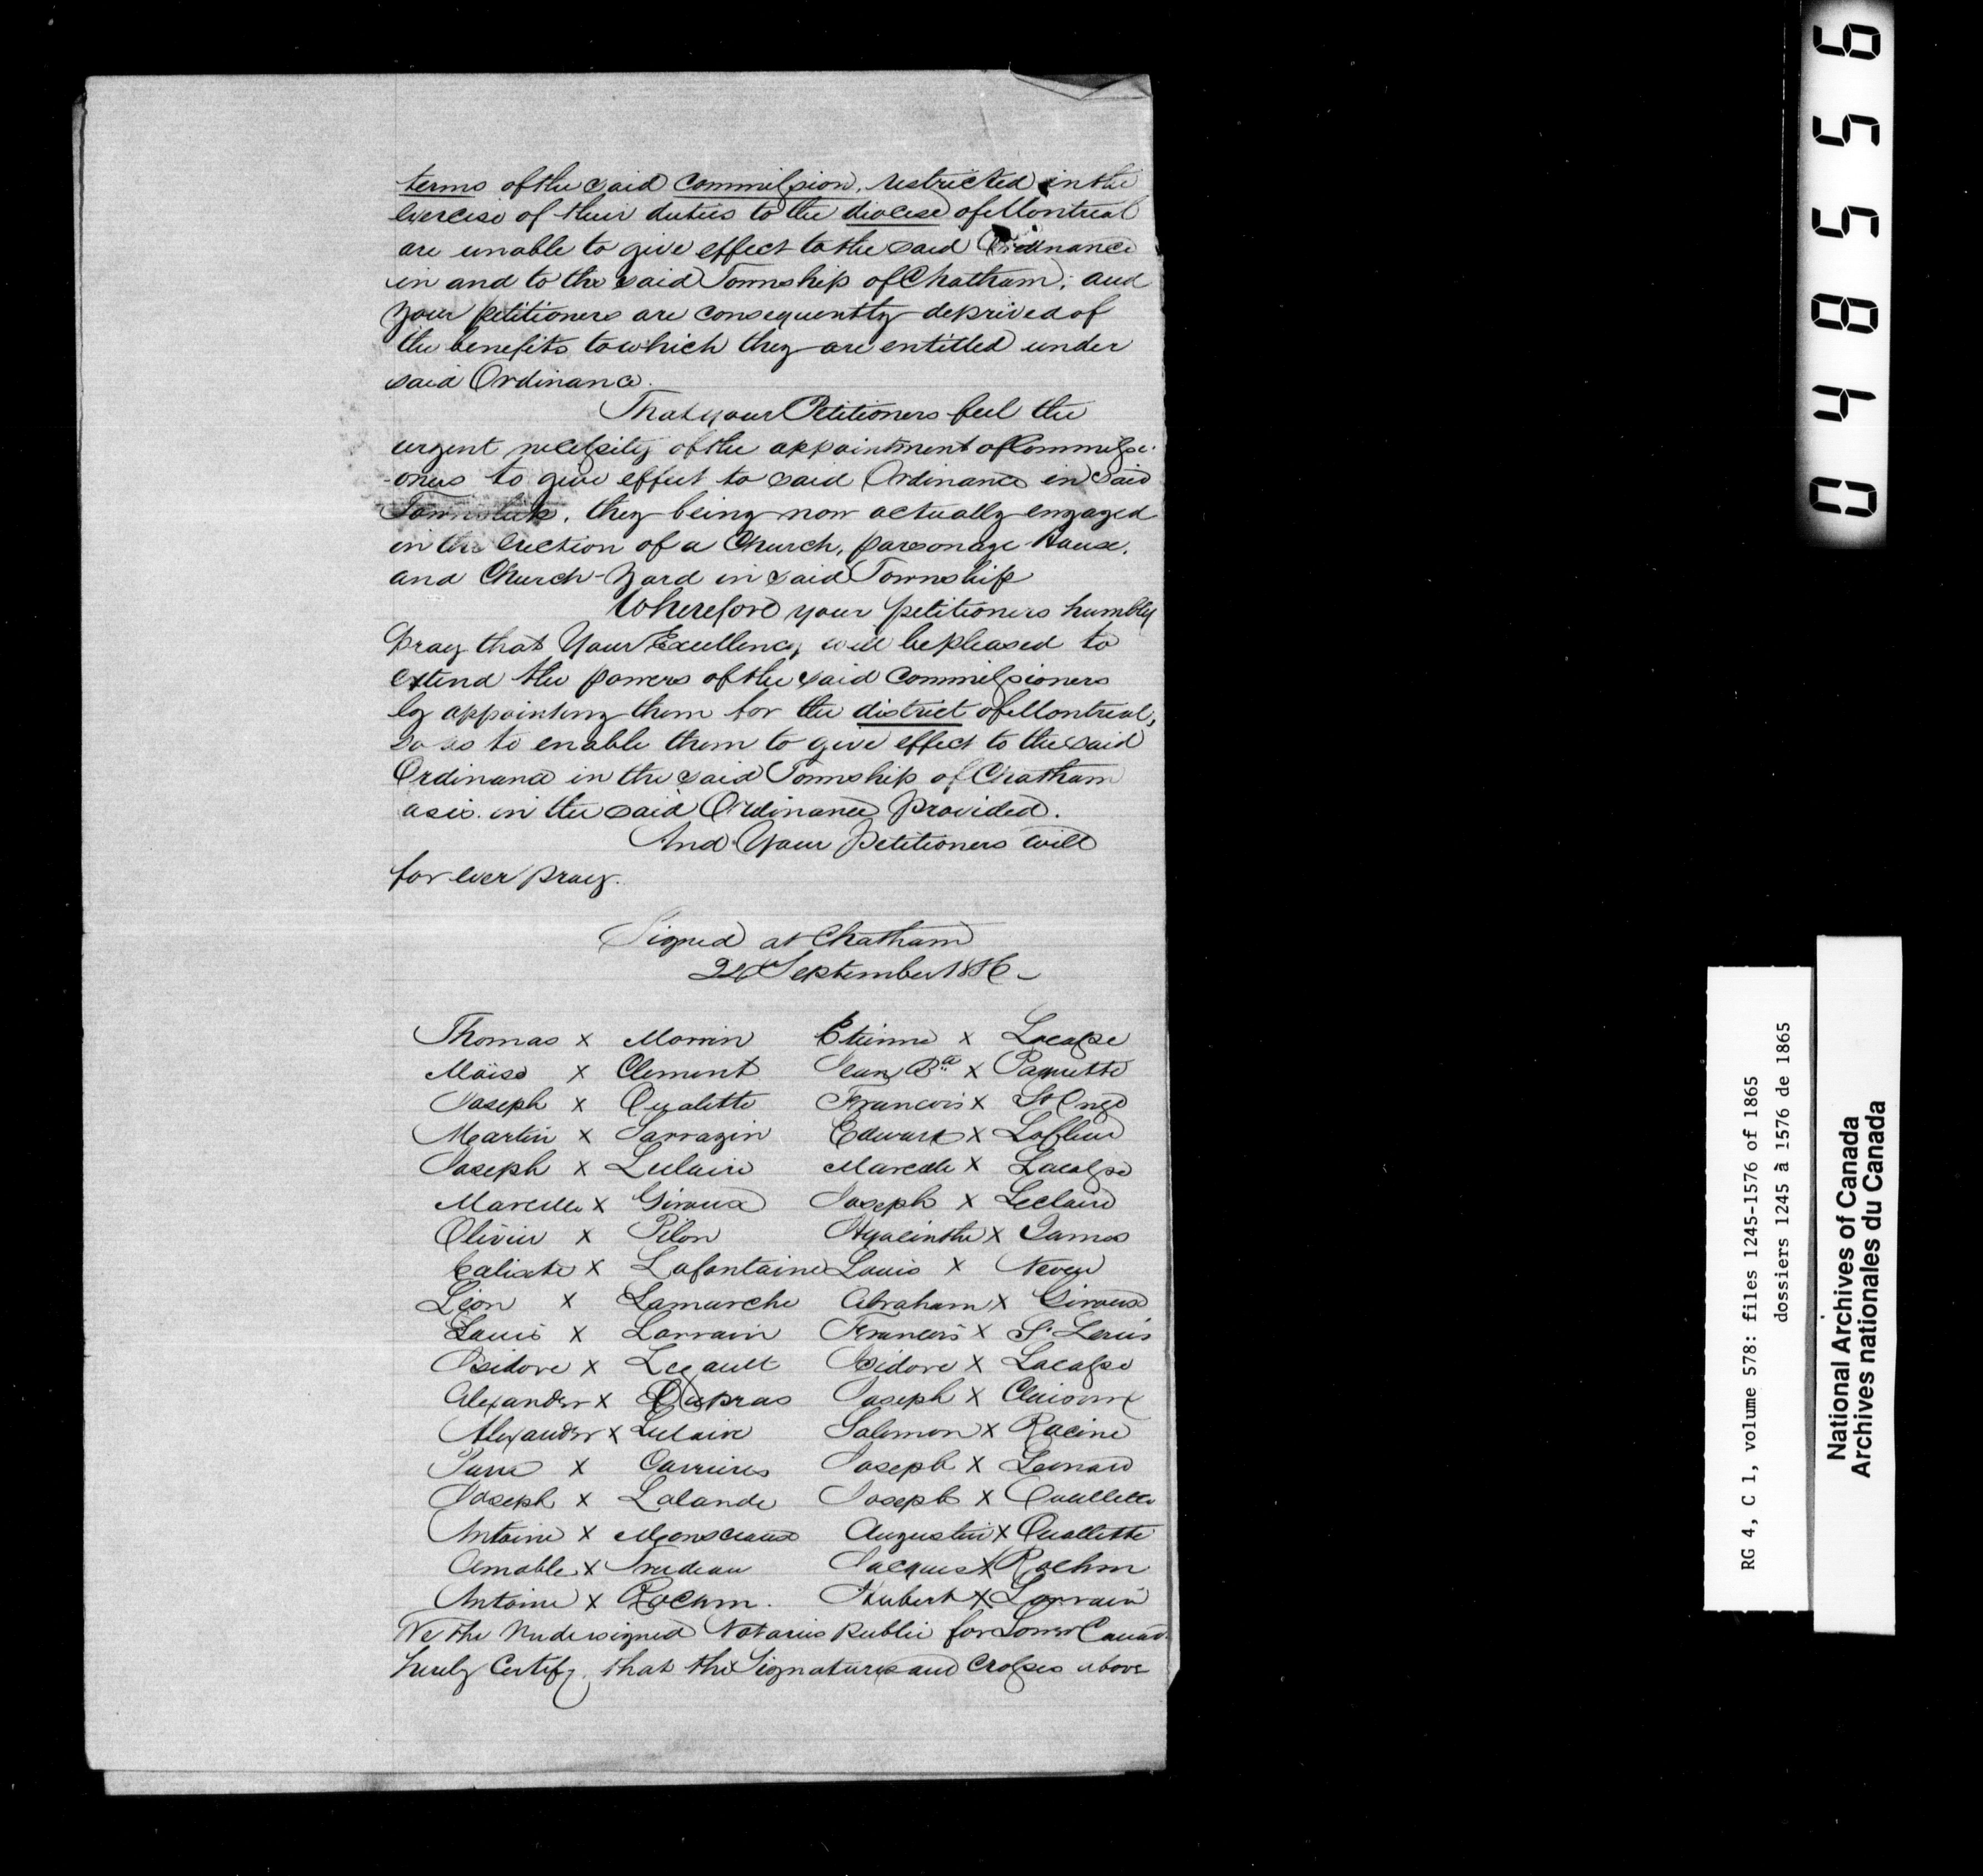 terms of the said commission, restricted in the
exercise of their duties to the diocese of Montreal
are unable to give effect to the said Ordinance
in and to the said Township of Chatham; and
your petitioners are consequently deprived of
the benefits to which they are entitled under
said Ordinance.
That your Petitioners feel the
urgent necessity of the appointment of Commissi-
-oners to give effect to said Ordinance in said
Township, they being now actually engaged
in the erection of a Church, parsonage House,
and Church-Yard in said Township
Wherefore your petitioners humbly
pray that Your Excellency will be pleased to
extend the powers of the said commissioners
by appointing them for the district of Montreal,
so as to enable them to give effect to the said
Ordinance in the said Township of Chatham
as is in the said Ordinance provided.
And Your Petitioners will
for ever pray.
Signed at Chatham
September
Thomas x Morrin Etienne x Lacasse
Moïse x Clement Jean Bte x Paquette
Joseph x Oualette Francois x St Onge
Martin x Sarrazin Edward x Lafleur
Joseph x Leclaire Marcelle x Lacasse
Marcelle x Giroux Joseph x Leclaire
Olivier x Pilon Hyacinthe x James
Calixte x Lafontaine Louis x Neveu
Léon x Lamarche Abraham x Giroux
Louis x Lorrain Francois x St Louis
Isidore x Legault Isidore x Lacasse
Alexander x Dupras Joseph x Clairoux
Alexander x Leclaire Salomon x Racine
Pierre x Carrieres Joseph x Leonard
Joseph x Lalande Joseph x Ouellette
Antoine x Monsceaux Augustin x Oualette
Amable x Trudeau Jacques x Rochm
Antoine x Rochm. Hubert x Lorrain
We the Undersigned Notaries Public for Lower Canad
hereby Certify, that the Signatures and Crosses above
048556
RG 4, C 1, volume 578: files 1245-1576 of 1865
dossiers 1245 à 1576 de 1865
National Archives of Canada
Archives nationales du Canada